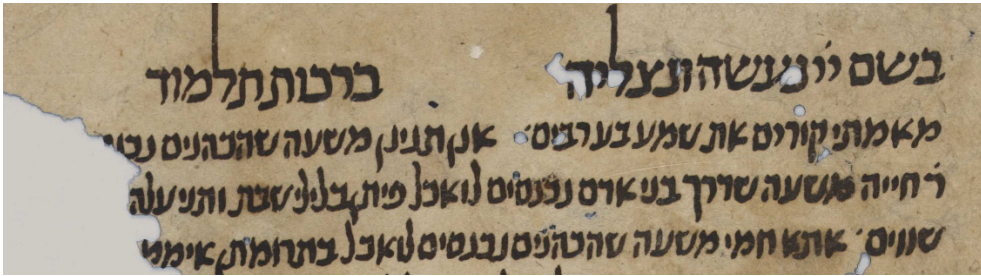 בשם ייי נעשה ונצליח ברכות תלמוד
מאמתי קורים את שמע בערבים אנן תנינן משעה שהכהנים
ר חייה משעה שדרך בני אדם נכנסים לואכל פיתן בלילי שבת ותני עלה
שווים אתא חמי משעה שהכהנים נכנסים לואכל בתרומתן